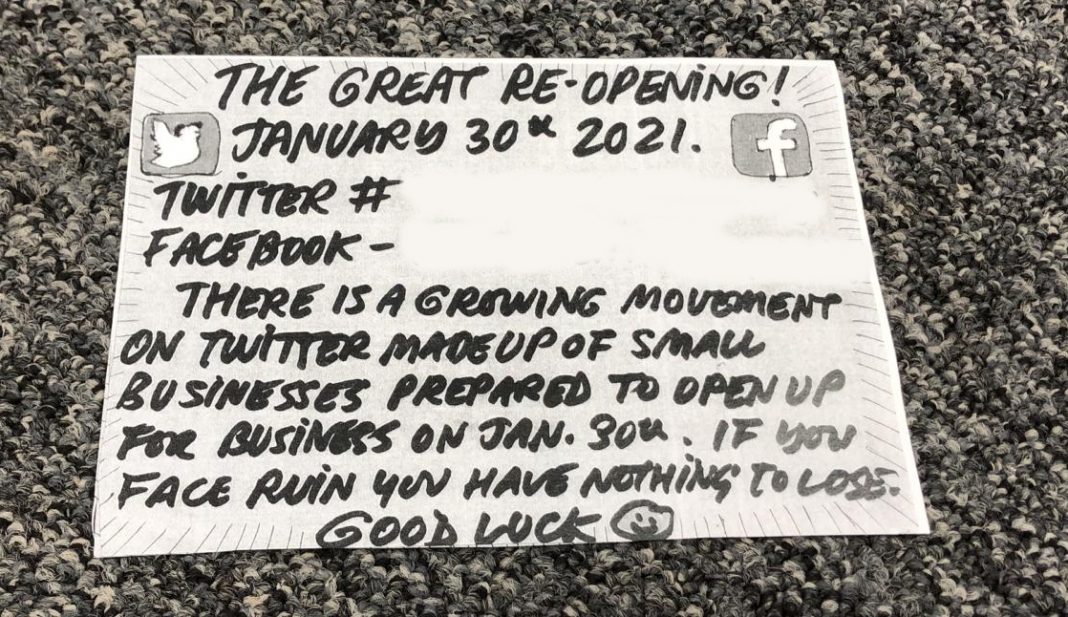 THE GREAT RE-OPENING!
JANUARY 30th 2021.
TWITTER #
FACEBOOK -
THERE IS A GROWING MOVEMENT
ON TWITTER MADE UP OF SMALL
BUSINESSES PREPARED TO OPEN UP
FOR BUSINESS ON JAN. 30th. IF YOU
FACE RUIN YOU HAVE NOTHING TO LOSE.
GOOD LUCK